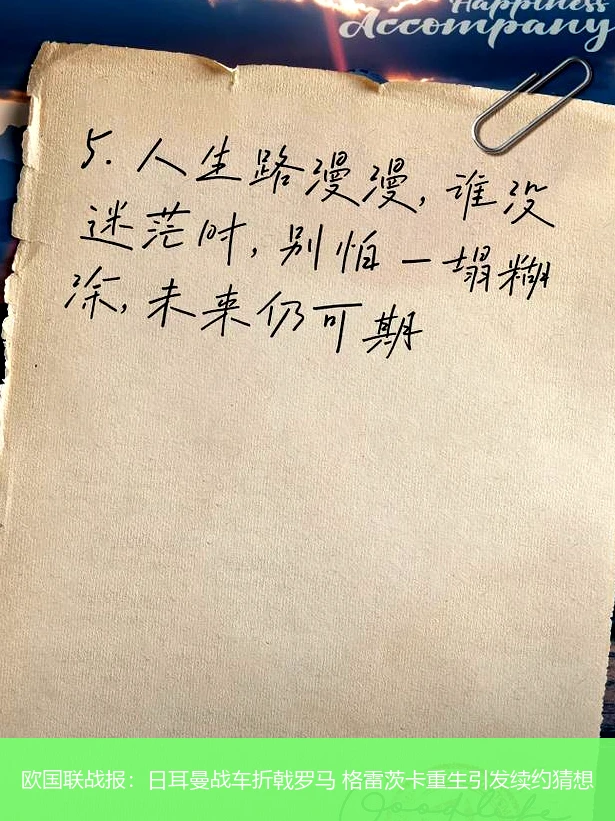 Happiness
Accompany
5.人生路漫漫,谁没
迷茫时,别怕一塌糊
涂,未来仍可期
欧国联战报：日耳曼战车折戟罗马 格雷茨卡重生引发续约猜想
Good life